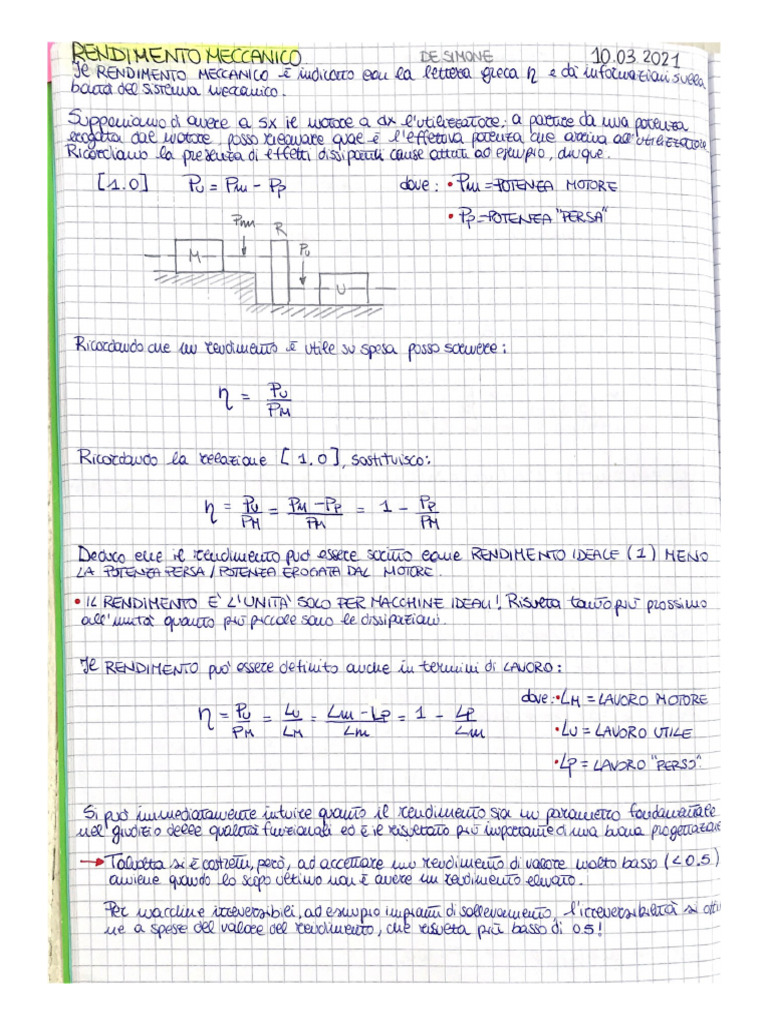 RENDIMENTO MECCANICO DE SIMONE 10.03.2021
Il RENDIMENTO MECCANICO è indicato con la lettera greca η e dà informazioni sulla
bontà del sistema meccanico.
Supponiamo di avere a sx il motore a dx l'utilizzatore; a partire da una potenza
erogata dal motore, posso ricavare qual è l'effettiva potenza che arriva all'utilizzatore.
Ricordiamo la presenza di effetti dissipativi cause attriti ad esempio, dunque.
[1.0] Pu = Pm - Pp dove: • Pm = POTENZA MOTORE
• Pp = POTENZA "PERSA"
Pm R Pu
M U
Ricordando che un rendimento è utile su spesa posso scrivere:
η = PU/PM
Ricordando la relazione [1.0], sostituisco:
η = PU/PM = PM - PP/PM = 1 - PP/PM
Deduco che il rendimento può essere scritto come RENDIMENTO IDEALE (1) MENO
LA POTENZA PERSA / POTENZA EROGATA DAL MOTORE.
• IL RENDIMENTO E' L'UNITA' SOLO PER MACCHINE IDEALI! Risulta tanto più prossimo
all'unità quanto più piccole sono le dissipazioni.
Il RENDIMENTO può essere definito anche in termini di LAVORO:
dove: • LM = LAVORO MOTORE
η = PU/PM = LU/LM = Lm - LP/Lm = 1 - LP/Lm
• LU = LAVORO UTILE
• LP = LAVORO "PERSO".
Si può immediatamente intuire quanto il rendimento sia un parametro fondamentale
nel giudizio delle qualità funzionali ed è il risultato più importante di una buona progettazione
→ Talvolta si è costretti, però, ad accettare un rendimento di valore molto basso (<0.5)
avviene quando lo scopo ultimo non è avere un rendimento elevato.
Per macchine irreversibili, ad esempio impianti di sollevamento, l'irreversibilità si otti
ne a spese del valore del rendimento, che risulta più basso di 0.5!